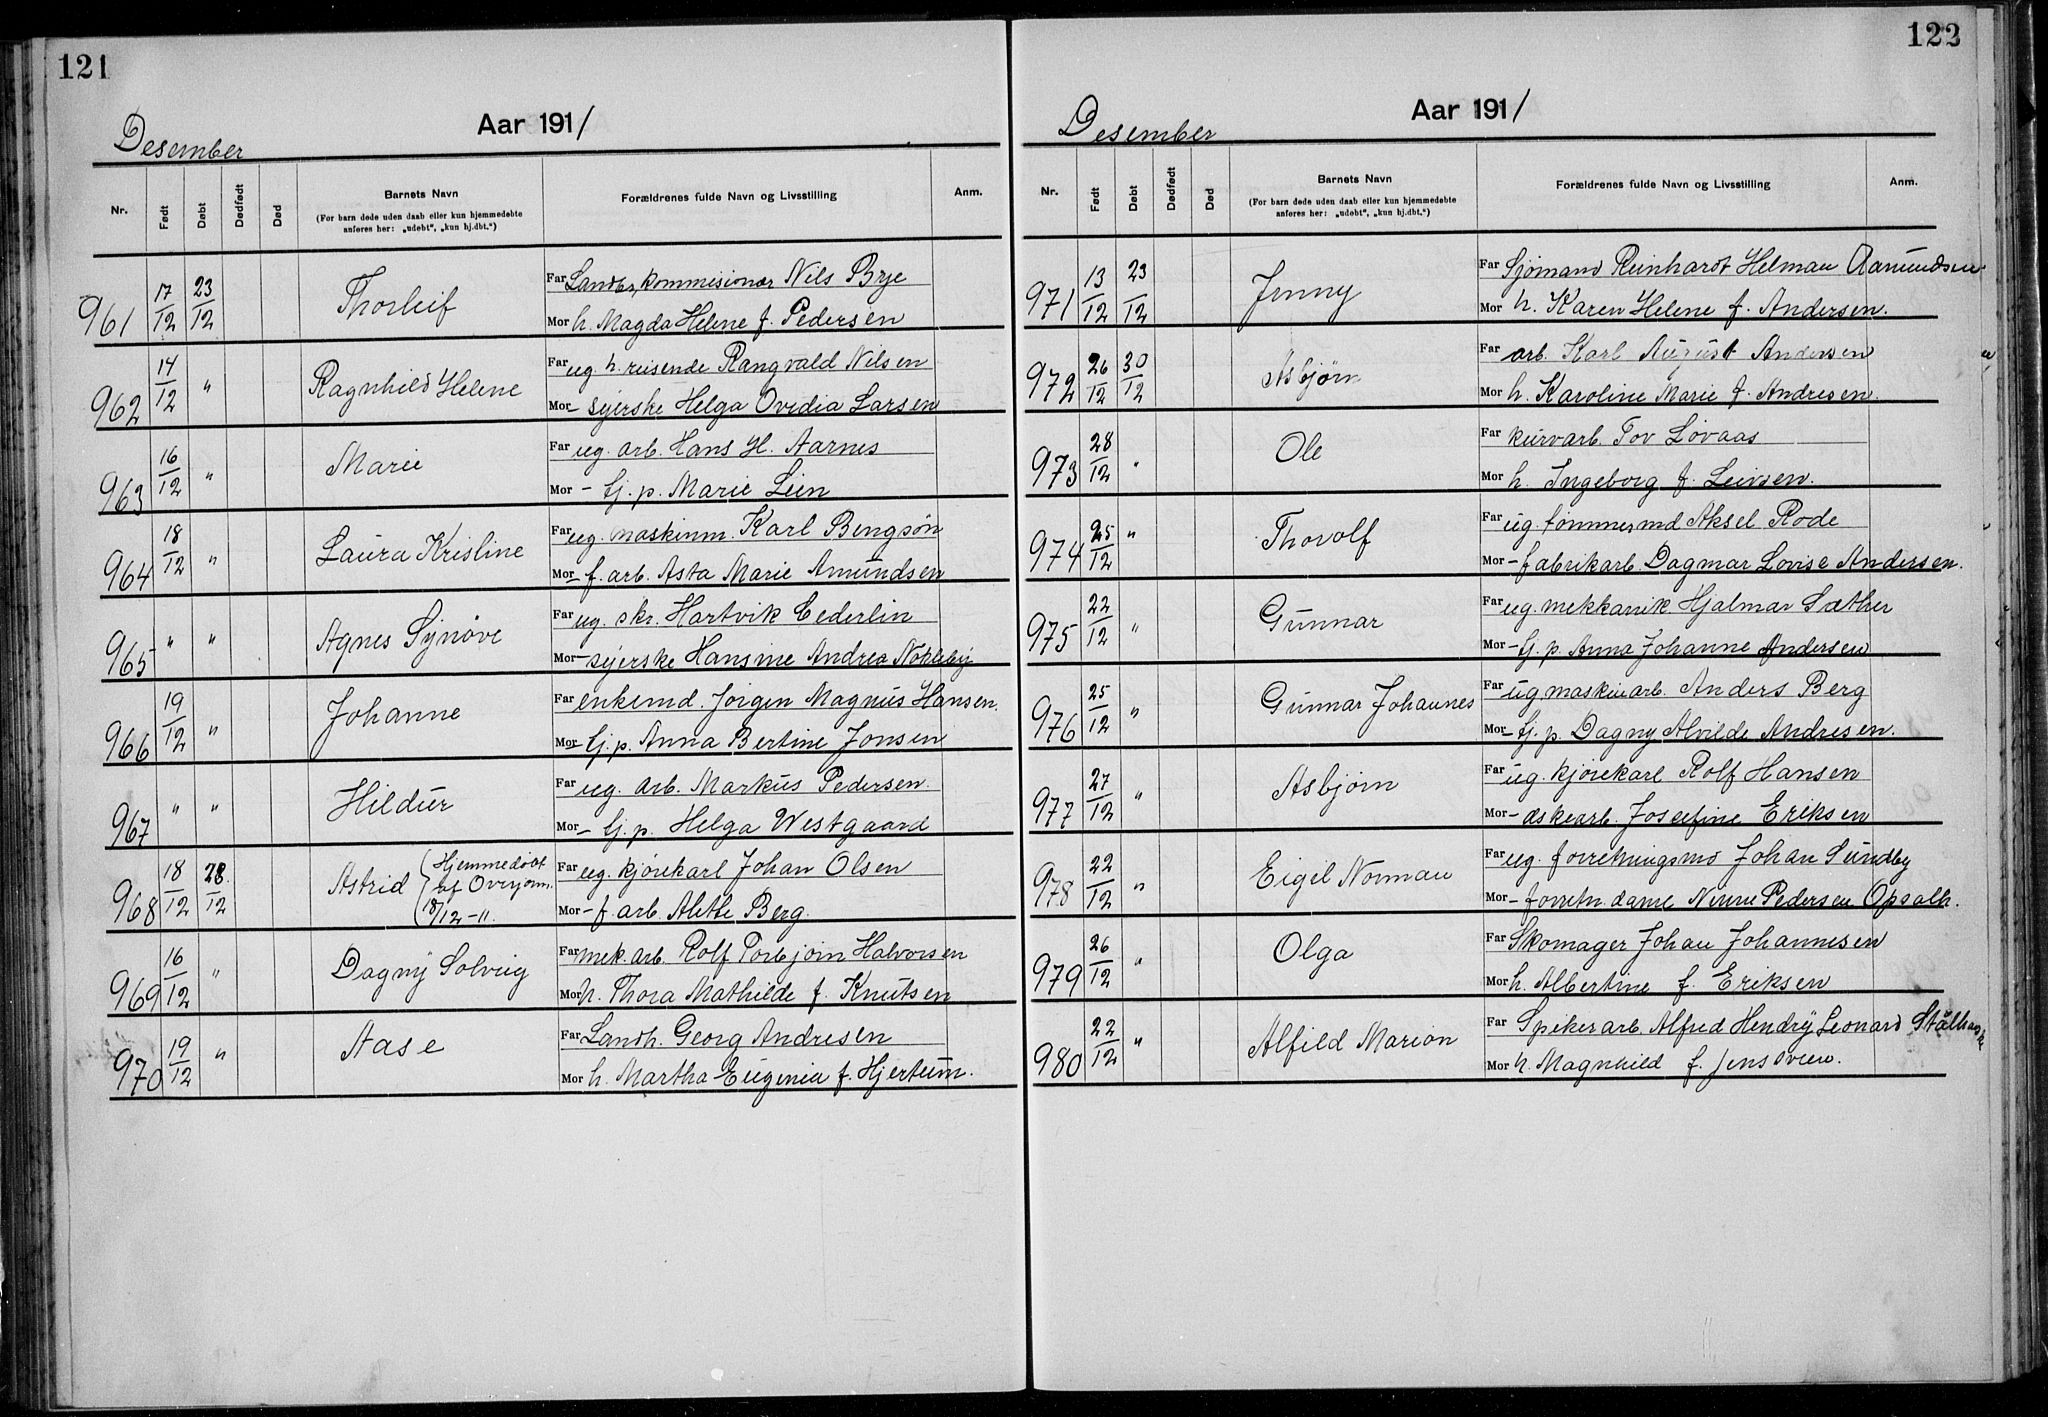 121
Desember
Aar 1911
Nr. Født Døbt Dødfødt Død Barnets Navn Forældrenes fulde Navn og Livsstilling Anm.
(For barn døde uden daab eller kun hjemmedøbte
anføres her: „udøbt“, „kun hj.dbt.“)
961 17/12 23/12 Thorleif Far kommisionær Nils Brye
Mor h. Magda Helene f. Pedersen
962 14/12 " Ragnhild Helene Far ug h. reisende Rangvald Nilsen
Mor – syerske Helga Ovidia Larsen
963 16/12 " Marie Far ug. arb. Hans H. Aarnes
Mor – tj. p. Marie Lien
964 18/12 " Laura Kristine Far ug. maskinm. Karl Bengsøn
Mor – f. arb. Asta Marie Amundsen
965 " " Agnes Synøve Far ug. skr. Hartvik Cederlin
Mor – syerske Hansine Andrea Nokleby
966 19/12 " Johanne Far enkemd. Jørgen Magnus Hansen.
Mor – tj. p. Anna Bertine Jonsen
967 " " Hildur Far ug. arb. Markus Pedersen.
Mor – tj. p. Helga Westgaard
968 18/12 28/12 Astrid (Hjemmedøbt
af Overjorm.
18/12-11. Far ug. kjørekarl Johan Olsen
Mor – f. arb. Alette Berg.
969 16/12 " Dagny Solveig Far mek. arb. Rolf Torbjørn Halvorsen
Mor h. Thora Mathilde f. Knutsen
970 19/12 " Aase Far Landh. Georg Andresen
Mor h. Martha Eugenia f. Hjertum.
122
Desember
Aar 1911
Nr. Født Døbt Dødfødt Død Barnets Navn Forældrenes fulde Navn og Livsstilling Anm.
(For barn døde uden daab eller kun hjemmedøbte
anføres her: „udøbt“, „kun hj.dbt.“)
971 13/12 23/12 Jenny Far Sjømand Reinhardt Helman Aamundsen
Mor h. Karen Helene f. Andersen.
972 26/12 30/12 Asbjørn Far arb. Karl August Andersen
Mor h. Karoline Marie f. Andresen.
973 28/12 " Ole Far kurvarb. Tov Lovaas
Mor h. Ingeborg f. Leivsen.
974 25/12 " Thorolf Far ug. tømmermd Aksel Rode
Mor – fabrikarb. Dagmar Lovise Andersen.
975 22/12 " Gunnar Far ug. mekkanik. Hjalmar Sæther
Mor – tj. p. Anna Johanne Andersen
976 25/12 " Gunnar Johannes Far ug maskinarb. Anders Berg
Mor – tj. p. Dagny Alvilde Andresen.
977 27/12 " Asbjørn Far ug. kjørekarl Rolf Hansen
Mor – æskearb. Josefine Eriksen
978 22/12 " Eigil Norman Far ug. forretningsmd Johan Sundby
Mor – forretn. dame Ninne Pedersen Opsalh.
979 26/12 " Olga Far Skomager Johan Johannesen
Mor h. Albertine f. Eriksen
980 22/12 " Alfild Marion Far Spikerarb. Alfred Hendry Leonard Stålhanske
Mor h. Magnhild f. Jensoveen.